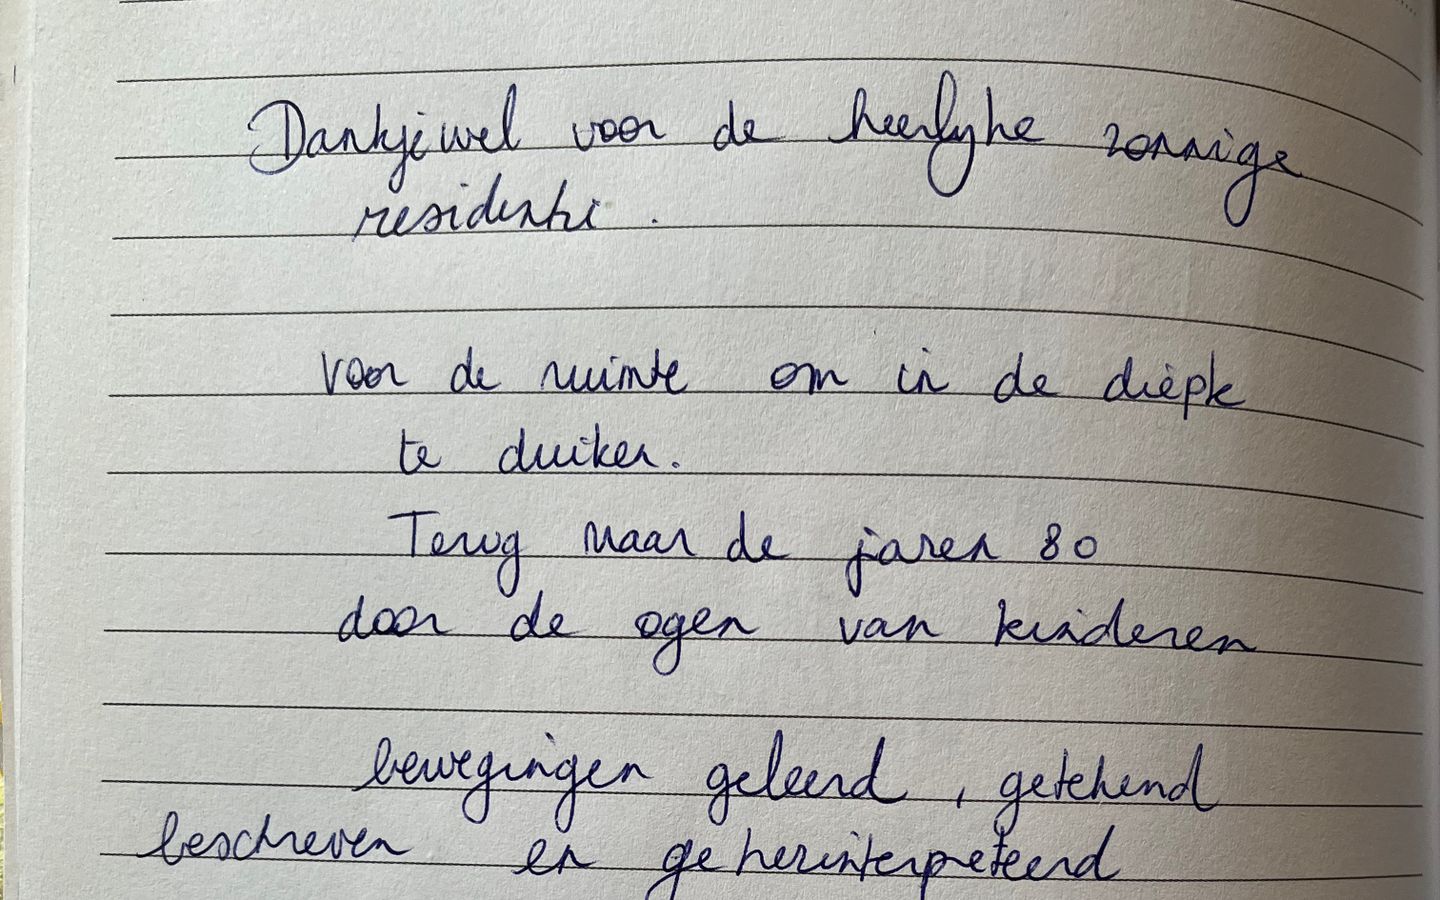 Dankjewel voor de heerlyke zonnige
residentie.
voor de ruimte om in de diepte
te duiken.
Terug naar de jaren 80
door de ogen van kinderen
bewegingen geleerd, getekend
beschreven en geherinterpreteerd